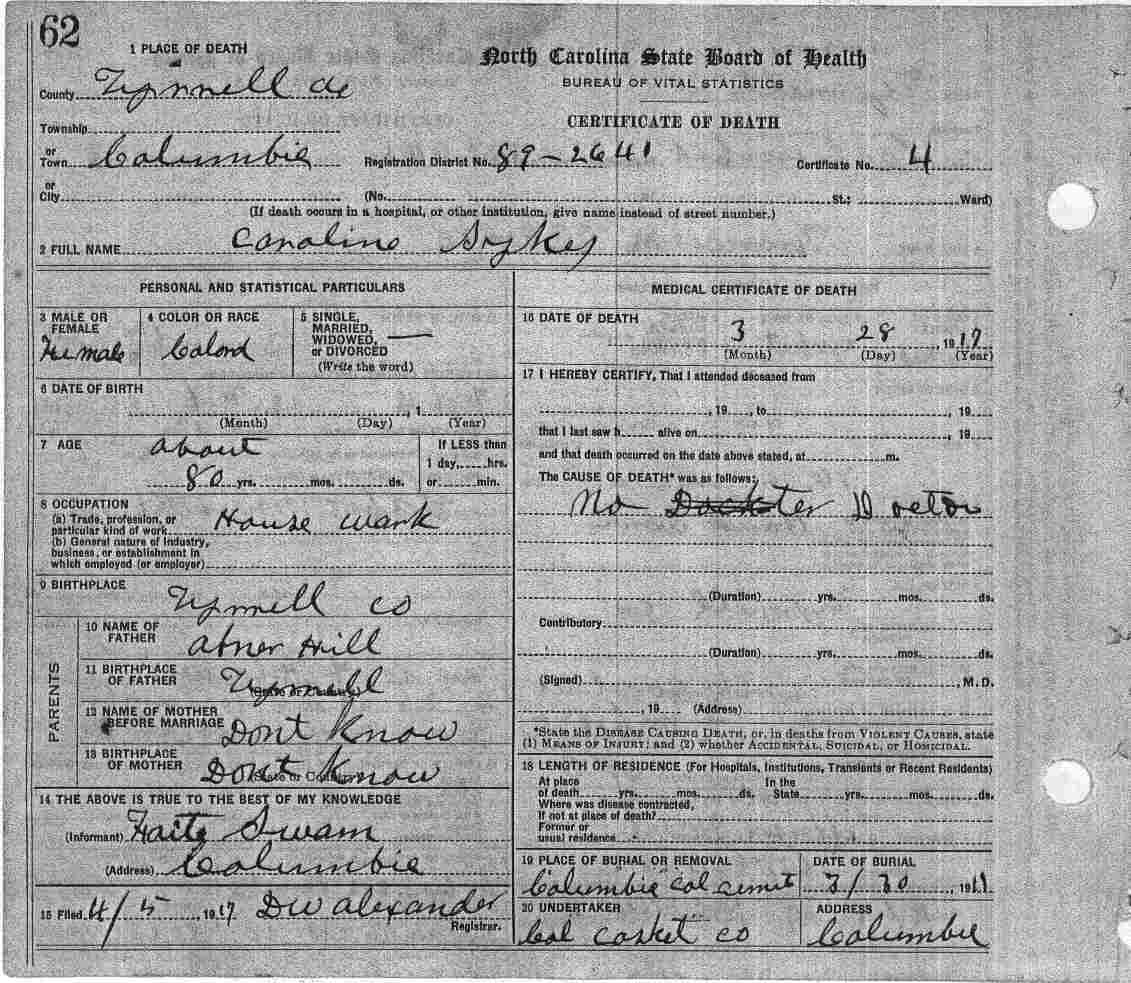 62
1 PLACE OF DEATH
North Carolina State Board of Health
BUREAU OF VITAL STATISTICS
CERTIFICATE OF DEATH
County Tyrrell Co
Township
or Town Columbie Registration District No. 89-2641 Certificate No. 4
or City (No. St.; Ward)
(If death occurs in a hospital, or other institution, give name instead of street number.)
2 FULL NAME Caroline Sykes
PERSONAL AND STATISTICAL PARTICULARS
3 MALE OR FEMALE Female
4 COLOR OR RACE Colord
5 SINGLE, MARRIED, WIDOWED, or DIVORCED —
(Write the word)
6 DATE OF BIRTH
, 1
(Month) (Day) (Year)
7 AGE about
80 yrs. mos. ds.
If LESS than
1 day, hrs.
or min.
8 OCCUPATION
(a) Trade, profession, or
particular kind of work House wark
(b) General nature of industry,
business, or establishment in
which employed (or employer)
9 BIRTHPLACE
Tyrrell co
PARENTS
10 NAME OF FATHER Abner Hill
11 BIRTHPLACE OF FATHER Tyrrell
12 NAME OF MOTHER BEFORE MARRIAGE Dont Know
13 BIRTHPLACE OF MOTHER Dont Know
14 THE ABOVE IS TRUE TO THE BEST OF MY KNOWLEDGE
(Informant) Swam
(Address) Columbie
15 Filed 4/5, 1917 DW Alexander
Registrar.
MEDICAL CERTIFICATE OF DEATH
16 DATE OF DEATH
3 28, 1917
(Month) (Day) (Year)
17 I HEREBY CERTIFY, That I attended deceased from
, 19 , to , 19
that I last saw h alive on , 19
and that death occurred on the date above stated, at m.
The CAUSE OF DEATH* was as follows:
No Dockter
(Duration) yrs. mos. ds.
Contributory
(Duration) yrs. mos. ds.
(Signed) , M.D.
, 19 (Address)
*State the DISEASE CAUSING DEATH, or, in deaths from VIOLENT CAUSES, state
(1) MEANS OF INJURY; and (2) whether ACCIDENTAL, SUICIDAL, or HOMICIDAL.
18 LENGTH OF RESIDENCE (For Hospitals, Institutions, Transients or Recent Residents)
At place of death yrs. mos. ds. In the State yrs. mos. ds.
Where was disease contracted,
If not at place of death?
Former or
usual residence
19 PLACE OF BURIAL OR REMOVAL
Columbie col
DATE OF BURIAL
3/30, 191
20 UNDERTAKER
Col casket co
ADDRESS
Columbie